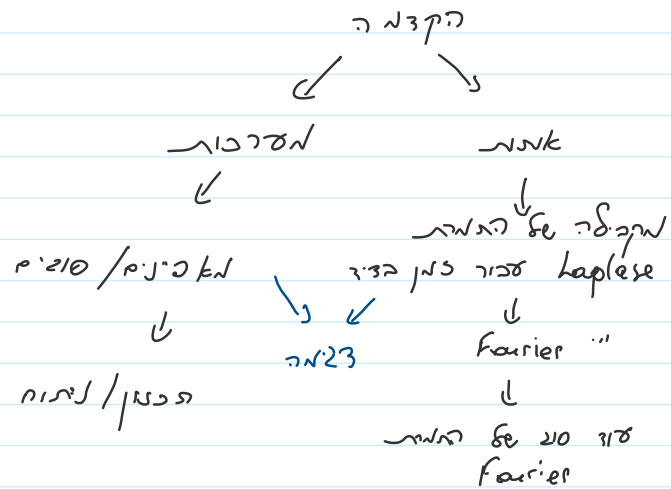 הקדמה
אותות
מערכות
מקבילה של התמרת
Laplase עבור זמן בדיד
מאפיינים/סוגים
Fourier "'
דגימה
תכנון/ניתוח
עוד סוג של התמרת
Fourier